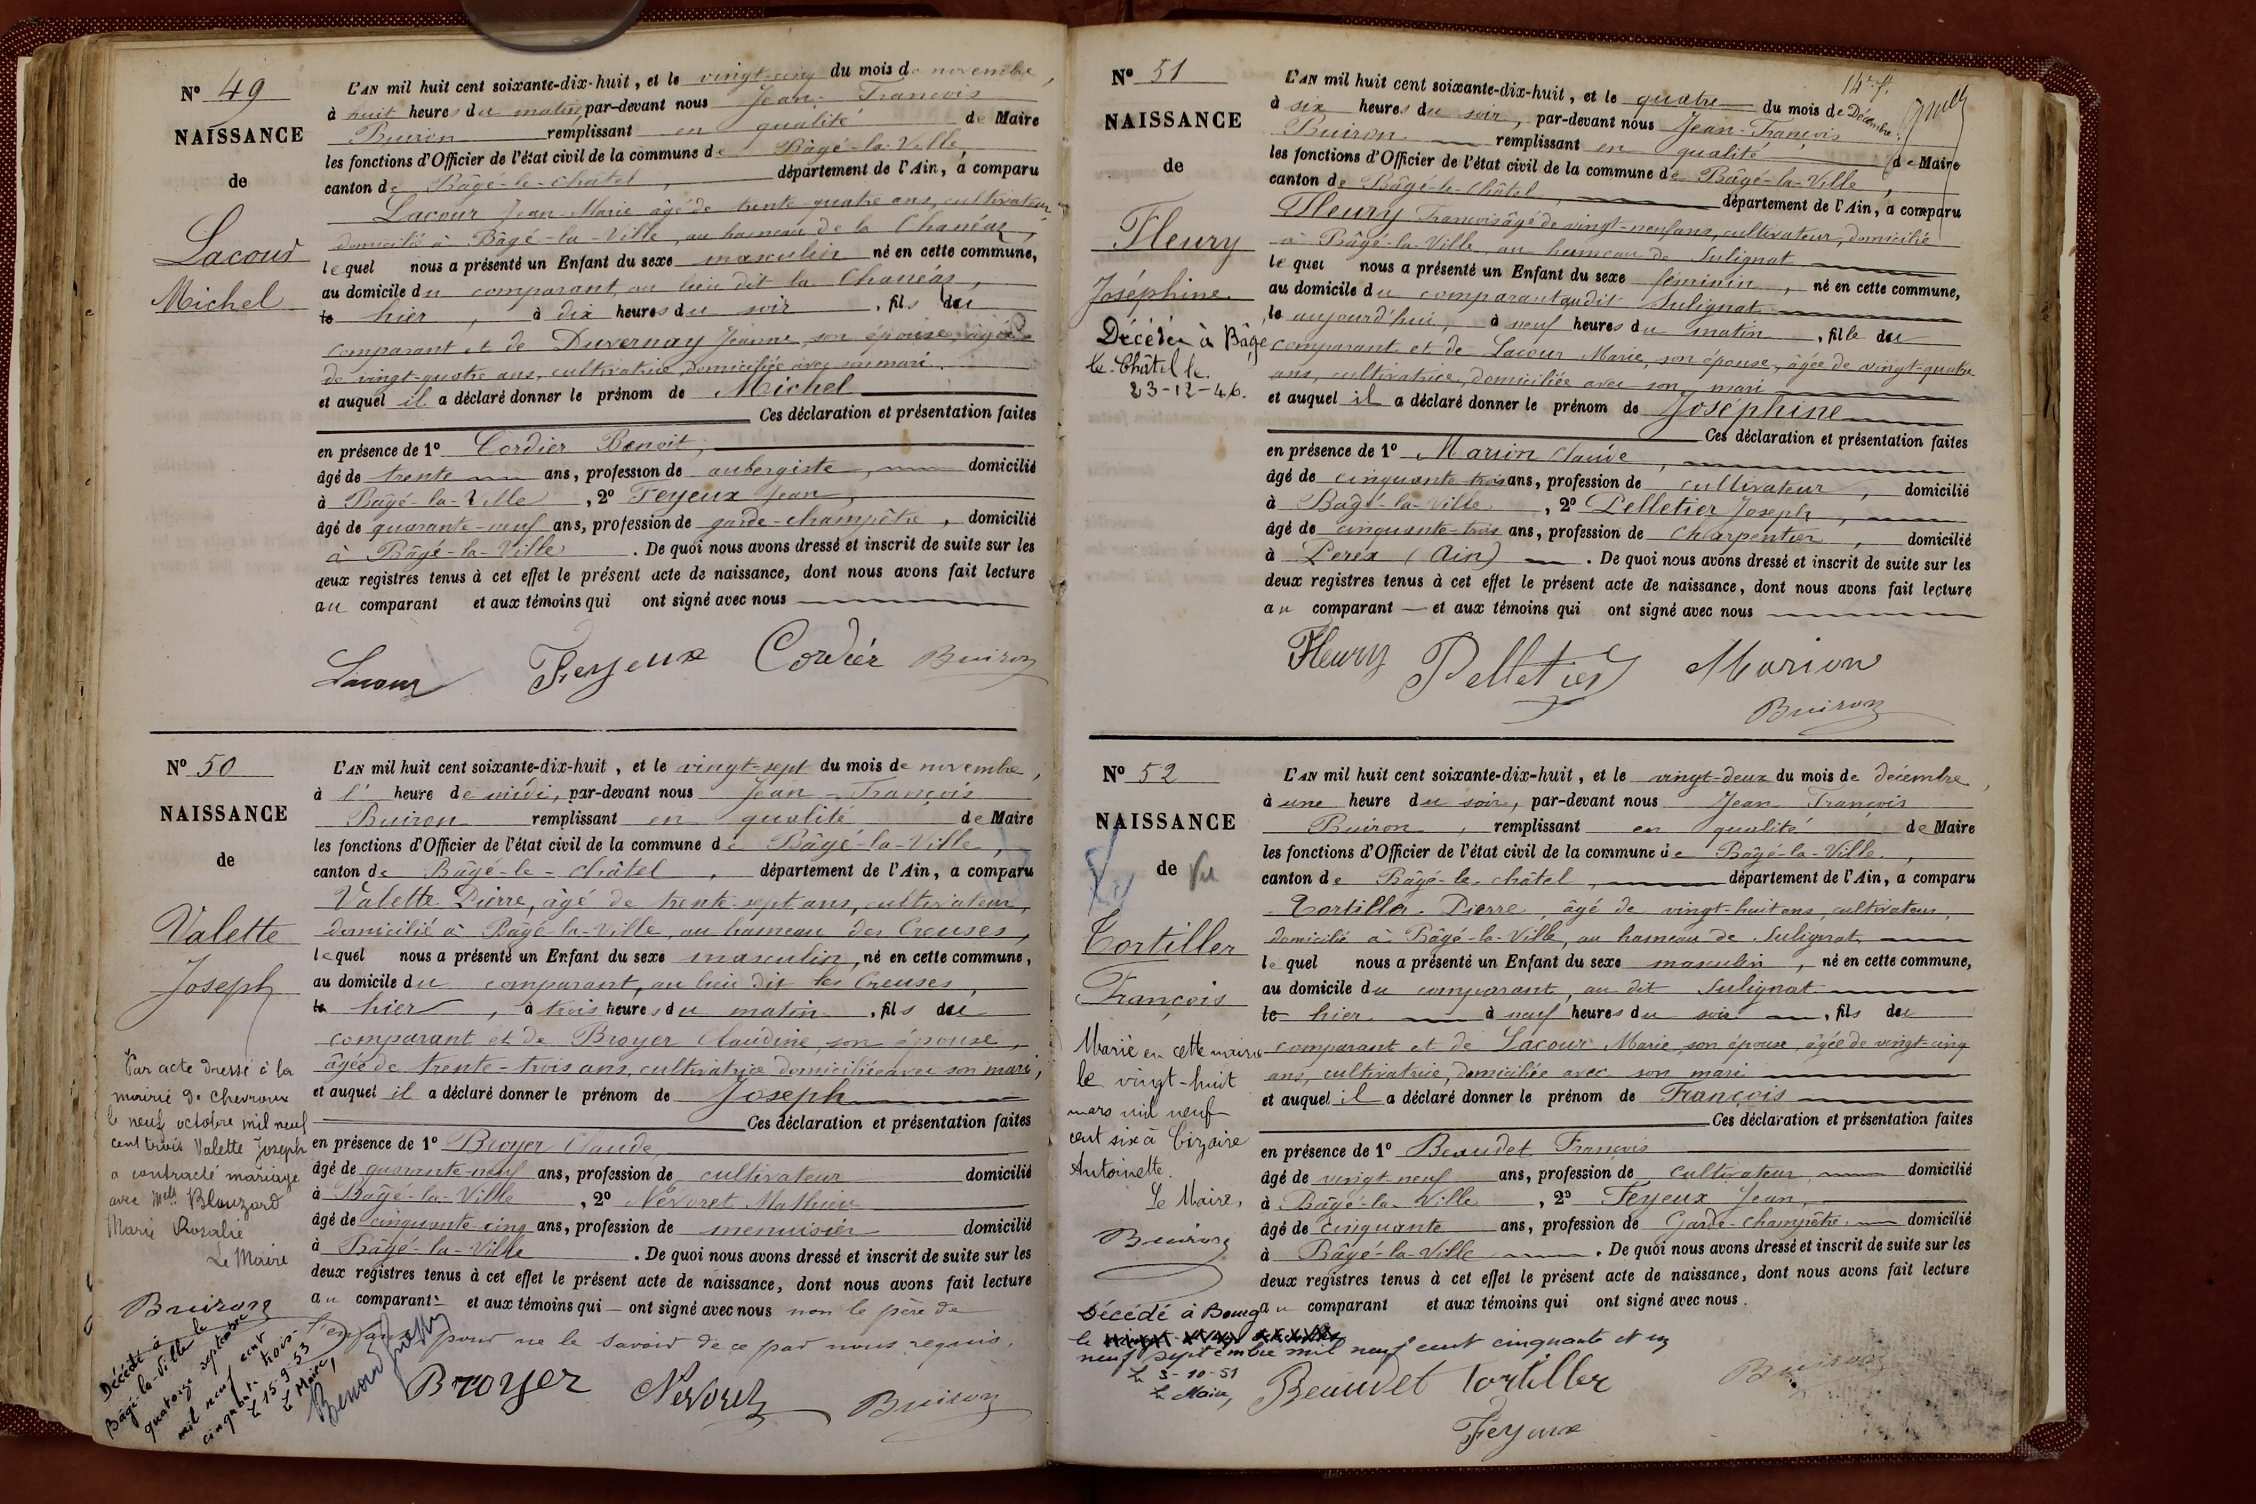 Nº 49
NAISSANCE
de
Lacour
Michel
L'AN mil huit cent soixante-dix-huit, et le vingt-cinq du mois de novembre,
à huit heures du matin par-devant nous Jean-François
Buiron remplissant en qualité de Maire
les fonctions d'Officier de l'état civil de la commune de Bâgé-la-Ville,
canton de Bâgé-le-Châtel, département de l'Ain, a comparu
Lacour Jean-Marie âgé de trente-quatre ans, cultivateur
domicilié à Bâgé-la-Ville, au hameau de la Chanéaz,
lequel nous a présenté un Enfant du sexe masculin né en cette commune,
au domicile du comparant, au lieu dit la Chanéaz,
le hier, à dix heures du soir, fils du
comparant et de Duvernay Jeanne, son épouse, âgée
de vingt-quatre ans, cultivatrice, domiciliée avec son mari.
et auquel il a déclaré donner le prénom de Michel
Ces déclaration et présentation faites
en présence de 1º Cordier Benoit,
âgé de trente ans, profession de aubergiste, domicilié
à Bâgé-la-Ville, 2º Feyeux Jean,
âgé de quarante-neuf ans, profession de garde-champêtre, domicilié
à Bâgé-la-Ville. De quoi nous avons dressé et inscrit de suite sur les
deux registres tenus à cet effet le présent acte de naissance, dont nous avons fait lecture
au comparant et aux témoins qui ont signé avec nous
Lacour Feyeux Cordier Buiron
Nº 50
NAISSANCE
de
Valette
Joseph
Par acte dressé à la
mairie de Chevroux
le neuf octobre mil neuf
cent trois Valette Joseph
a contracté mariage
avec Melle Blouzard
Marie Rosalie
Le Maire
Buiron
Décédé à
Bâgé-la-Ville le
quatorze septembre
mil neuf cent
cinquante trois.
Le 15-9-53
Le Maire,
L'AN mil huit cent soixante-dix-huit, et le vingt-sept du mois de novembre,
à l' heure de midi, par-devant nous Jean-François
Buiron remplissant en qualité de Maire
les fonctions d'Officier de l'état civil de la commune de Bâgé-la-Ville,
canton de Bâgé-le-Châtel, département de l'Ain, a comparu
Valette Pierre, âgé de trente-sept ans, cultivateur,
domicilié à Bâgé-la-Ville, au hameau des Creuses,
lequel nous a présenté un Enfant du sexe masculin, né en cette commune,
au domicile du comparant, au lieu dit les Creuses,
le hier, à trois heures du matin, fils du
comparant et de Broyer Claudine, son épouse,
âgée de trente-trois ans, cultivatrice domiciliée avec son mari,
et auquel il a déclaré donner le prénom de Joseph
Ces déclaration et présentation faites
en présence de 1º Broyer Claude,
âgé de quarante-neuf ans, profession de cultivateur domicilié
à Bâgé-la-Ville, 2º Névoret Mathieu
âgé de cinquante-cinq ans, profession de menuisier domicilié
à Bâgé-la-Ville. De quoi nous avons dressé et inscrit de suite sur les
deux registres tenus à cet effet le présent acte de naissance, dont nous avons fait lecture
au comparant et aux témoins qui ont signé avec nous non le père de
l'enfant pour ne le savoir de ce par nous requis.
Broyer Névoret Buiron
Nº 51
NAISSANCE
de
Fleury
Joséphine
Décédée à Bâgé
le-Châtel le
23-12-46.
L'AN mil huit cent soixante-dix-huit, et le quatre du mois de Décembre
à six heures du soir, par-devant nous Jean-François
Buiron remplissant en qualité de Maire
les fonctions d'Officier de l'état civil de la commune de Bâgé-la-Ville,
canton de Bâgé-le-Châtel, département de l'Ain, a comparu
Fleury François âgé de vingt-neuf ans, cultivateur, domicilié
à Bâgé-la-Ville, au hameau de Sulignat
lequel nous a présenté un Enfant du sexe féminin, né en cette commune,
au domicile du comparant audit Sulignat
le aujourd'hui, à neuf heures du matin, fille du
comparant et de Lacour Marie, son épouse, âgée de vingt-quatre
ans, cultivatrice, domiciliée avec son mari
et auquel il a déclaré donner le prénom de Joséphine
Ces déclaration et présentation faites
en présence de 1º Marion Claude,
âgé de cinquante-trois ans, profession de cultivateur, domicilié
à Bâgé-la-Ville, 2º Pelletier Joseph,
âgé de cinquante-trois ans, profession de charpentier, domicilié
à Perex (Ain). De quoi nous avons dressé et inscrit de suite sur les
deux registres tenus à cet effet le présent acte de naissance, dont nous avons fait lecture
au comparant et aux témoins qui ont signé avec nous
Fleury Pelletier Marion
Buiron
Nº 52
NAISSANCE
de Vu
Tortiller
François
Marié en cette mairie
le vingt-huit
mars mil neuf
cent six à Cizaire
Antoinette.
Le Maire,
Buiron
Décédé à Bourg
le
neuf septembre mil neuf cent cinquante et un
Le 3-10-51
Le Maire,
L'AN mil huit cent soixante-dix-huit, et le vingt-deux du mois de décembre,
à une heure du soir, par-devant nous Jean François
Buiron, remplissant en qualité de Maire
les fonctions d'Officier de l'état civil de la commune de Bâgé-la-Ville,
canton de Bâgé-le-Châtel, département de l'Ain, a comparu
Tortiller Pierre, âgé de vingt-huit ans, cultivateur,
domicilié à Bâgé-la-Ville, au hameau de Sulignat
lequel nous a présenté un Enfant du sexe masculin, né en cette commune,
au domicile du comparant, au dit Sulignat
le hier à neuf heures du soir, fils du
comparant et de Lacour Marie, son épouse, âgée de vingt-cinq
ans, cultivatrice, domiciliée avec son mari
et auquel il a déclaré donner le prénom de François
Ces déclaration et présentation faites
en présence de 1º Beaudet François
âgé de vingt-neuf ans, profession de cultivateur domicilié
à Bâgé-la-Ville, 2º Feyeux Jean,
âgé de cinquante ans, profession de Garde-champêtre domicilié
à Bâgé-la-Ville. De quoi nous avons dressé et inscrit de suite sur les
deux registres tenus à cet effet le présent acte de naissance, dont nous avons fait lecture
au comparant et aux témoins qui ont signé avec nous.
Beaudet Tortiller Buiron
Feyeux